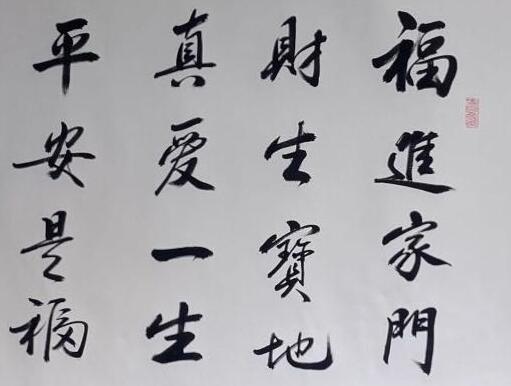 福進家門
財生寶地
真愛一生
平安是福